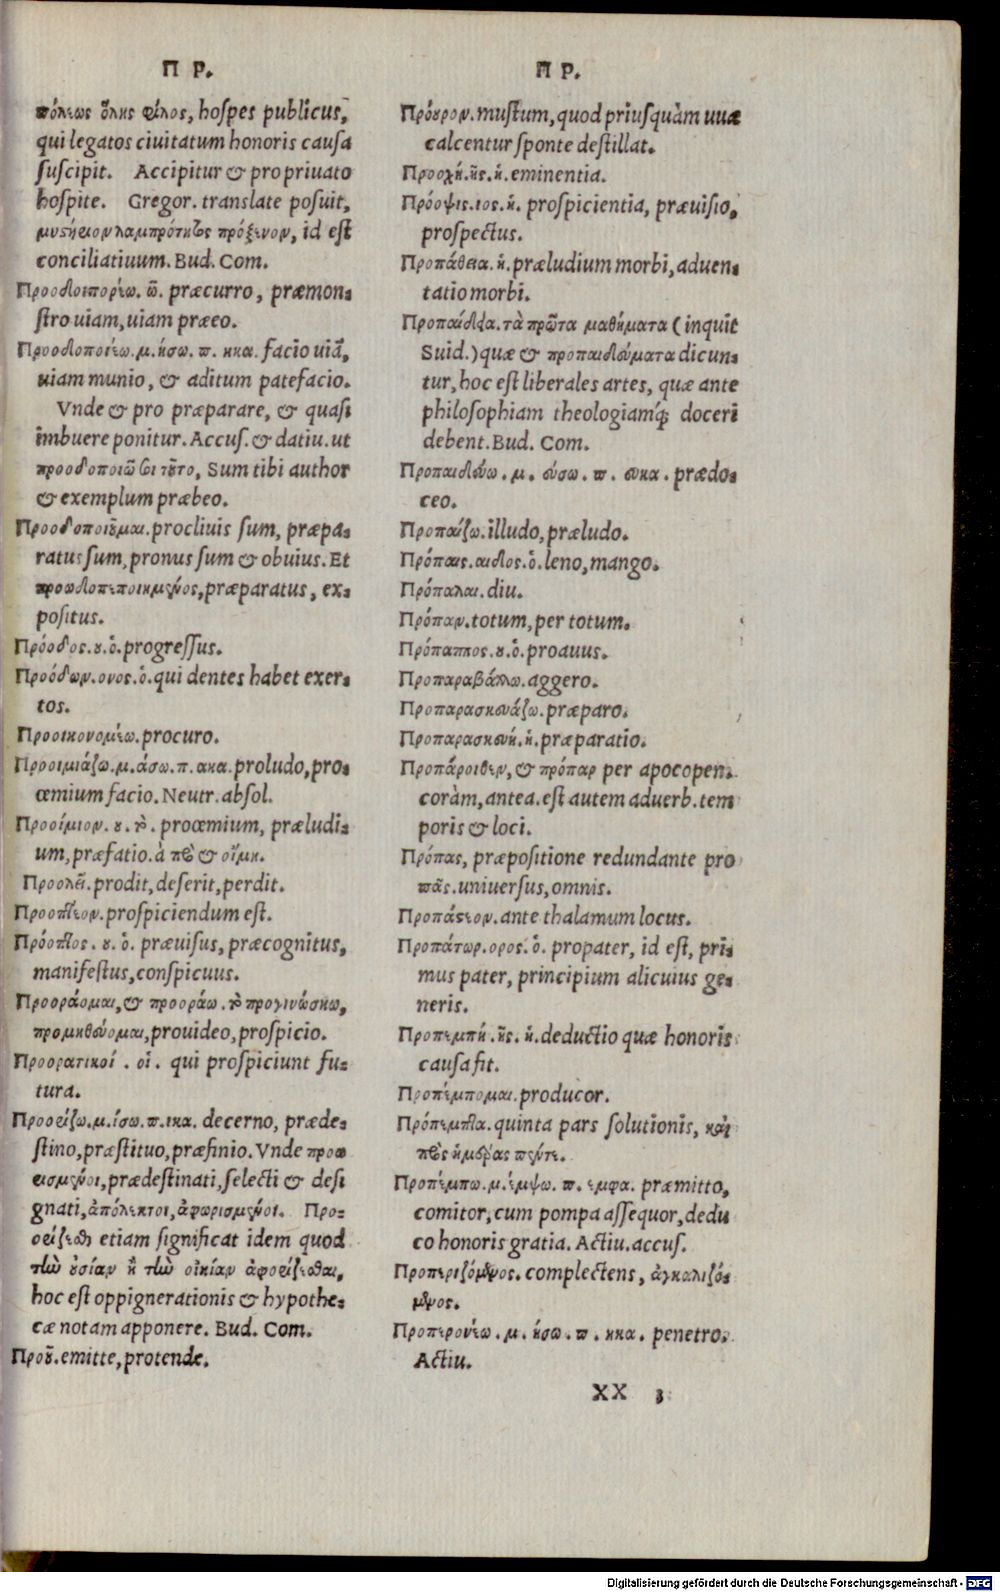 Π Ρ.
πόλεως ὅλης φίλος, hospes publicus,
qui legatos ciuitatum honoris causa
suscipit. Accipitur & pro priuato
hospite. Gregor. translate posuit,
μυστήριον λαμπρότητος πρόξενον, id est
conciliatiuum. Bud. Com.
Προοδοιπορέω. ῶ. præcurro, præmon-
stro uiam, uiam præeo.
Προοδοποιέω. μ. ήσω. π. ηκα. facio uiã,
uiam munio, & aditum patefacio.
Vnde & pro præparare, & quasi
imbuere ponitur. Accus. & datiu. ut
προοδοποιῶ σοι τοῦτο, Sum tibi author
& exemplum præbeo.
Προοδοποιοῦμαι. procliuis sum, præpa-
ratus sum, pronus sum & obuius. Et
προωδοπεποιημένος, præparatus, ex-
positus.
Πρόοδος. ου. ὁ. progressus.
Προόδων. οντος. ὁ. qui dentes habet exer-
tos.
Προοικονομέω. procuro.
Προοιμιάζω. μ. άσω. π. ακα. proludo, pro-
œmium facio. Neutr. absol.
Προοίμιον. ου. τὸ. proœmium, præludi-
um, præfatio. à πρὸ & οἴμη.
Προολεῖ. prodit, deserit, perdit.
Προοπτέον. prospiciendum est.
Πρόοπτος. ου. ὁ. præuisus, præcognitus,
manifestus, conspicuus.
Προοράομαι, & προοράω. τὸ προγινώσκω,
προμηθεύομαι, prouideo, prospicio.
Προορατικοί. οἱ. qui prospiciunt fu-
tura.
Προορίζω. μ. ίσω. π. ικα. decerno, præde-
stino, præstituo, præfinio. Vnde προω
ρισμένοι, prædestinati, selecti & desi
gnati, ἀπόλεκτοι, ἀφωρισμένοι. Προ-
ορίζειν etiam significat idem quod
τὴν οὐσίαν ἢ τὴν οἰκίαν ἀφορίζεσθαι,
hoc est oppignerationis & hypothe-
cæ notam apponere. Bud. Com.
Προοῦ. emitte, protende.
Π Ρ.
Πρόουρον. mustum, quod priusquàm uuæ
calcentur sponte destillat.
Προοχή. ῆς. ἡ. eminentia.
Πρόοψις. ιος. ἡ. prospicientia, præuisio,
prospectus.
Προπάθεια. ἡ. præludium morbi, aduen-
tatio morbi.
Προπαίδεια. τὰ πρῶτα μαθήματα (inquit
Suid.) quæ & προπαιδεύματα dicun-
tur, hoc est liberales artes, quæ ante
philosophiam theologiamq́; doceri
debent. Bud. Com.
Προπαιδεύω. μ. εύσω. π. ευκα. prædo-
ceo.
Προπαίζω. illudo, præludo.
Πρόπαις. αιδος. ὁ. leno, mango.
Πρόπαλαι. diu.
Πρόπαν. totum, per totum.
Πρόπαππος. ου. ὁ. proauus.
Προπαραβάλλω. aggero.
Προπαρασκευάζω. præparo.
Προπαρασκευή. ἡ. præparatio.
Προπάροιθεν, & πρόπαρ per apocopen.
coràm, antea. est autem aduerb. tem
poris & loci.
Πρόπας, præpositione redundante pro
πᾶς. uniuersus, omnis.
Προπάστιον. ante thalamum locus.
Προπάτωρ. ορος. ὁ. propater, id est, pri-
mus pater, principium alicuius ge-
neris.
Προπεμπή. ῆς. ἡ. deductio quæ honoris
causa fit.
Προπέμπομαι. producor.
Πρόπεμπτα. quinta pars solutionis, καὶ
πρὸς ἡμέρας πέντε.
Προπέμπω. μ. έμψω. π. εμφα. præmitto,
comitor, cum pompa assequor, dedu
co honoris gratia. Actiu. accus.
Προπεριζόμενος. complectens, ἀγκαλιζό-
μενος.
Προπερονέω. μ. ήσω. π. ηκα. penetro.
Actiu.
XX 3
Digitalisierung gefördert durch die Deutsche Forschungsgemeinschaft - DFG